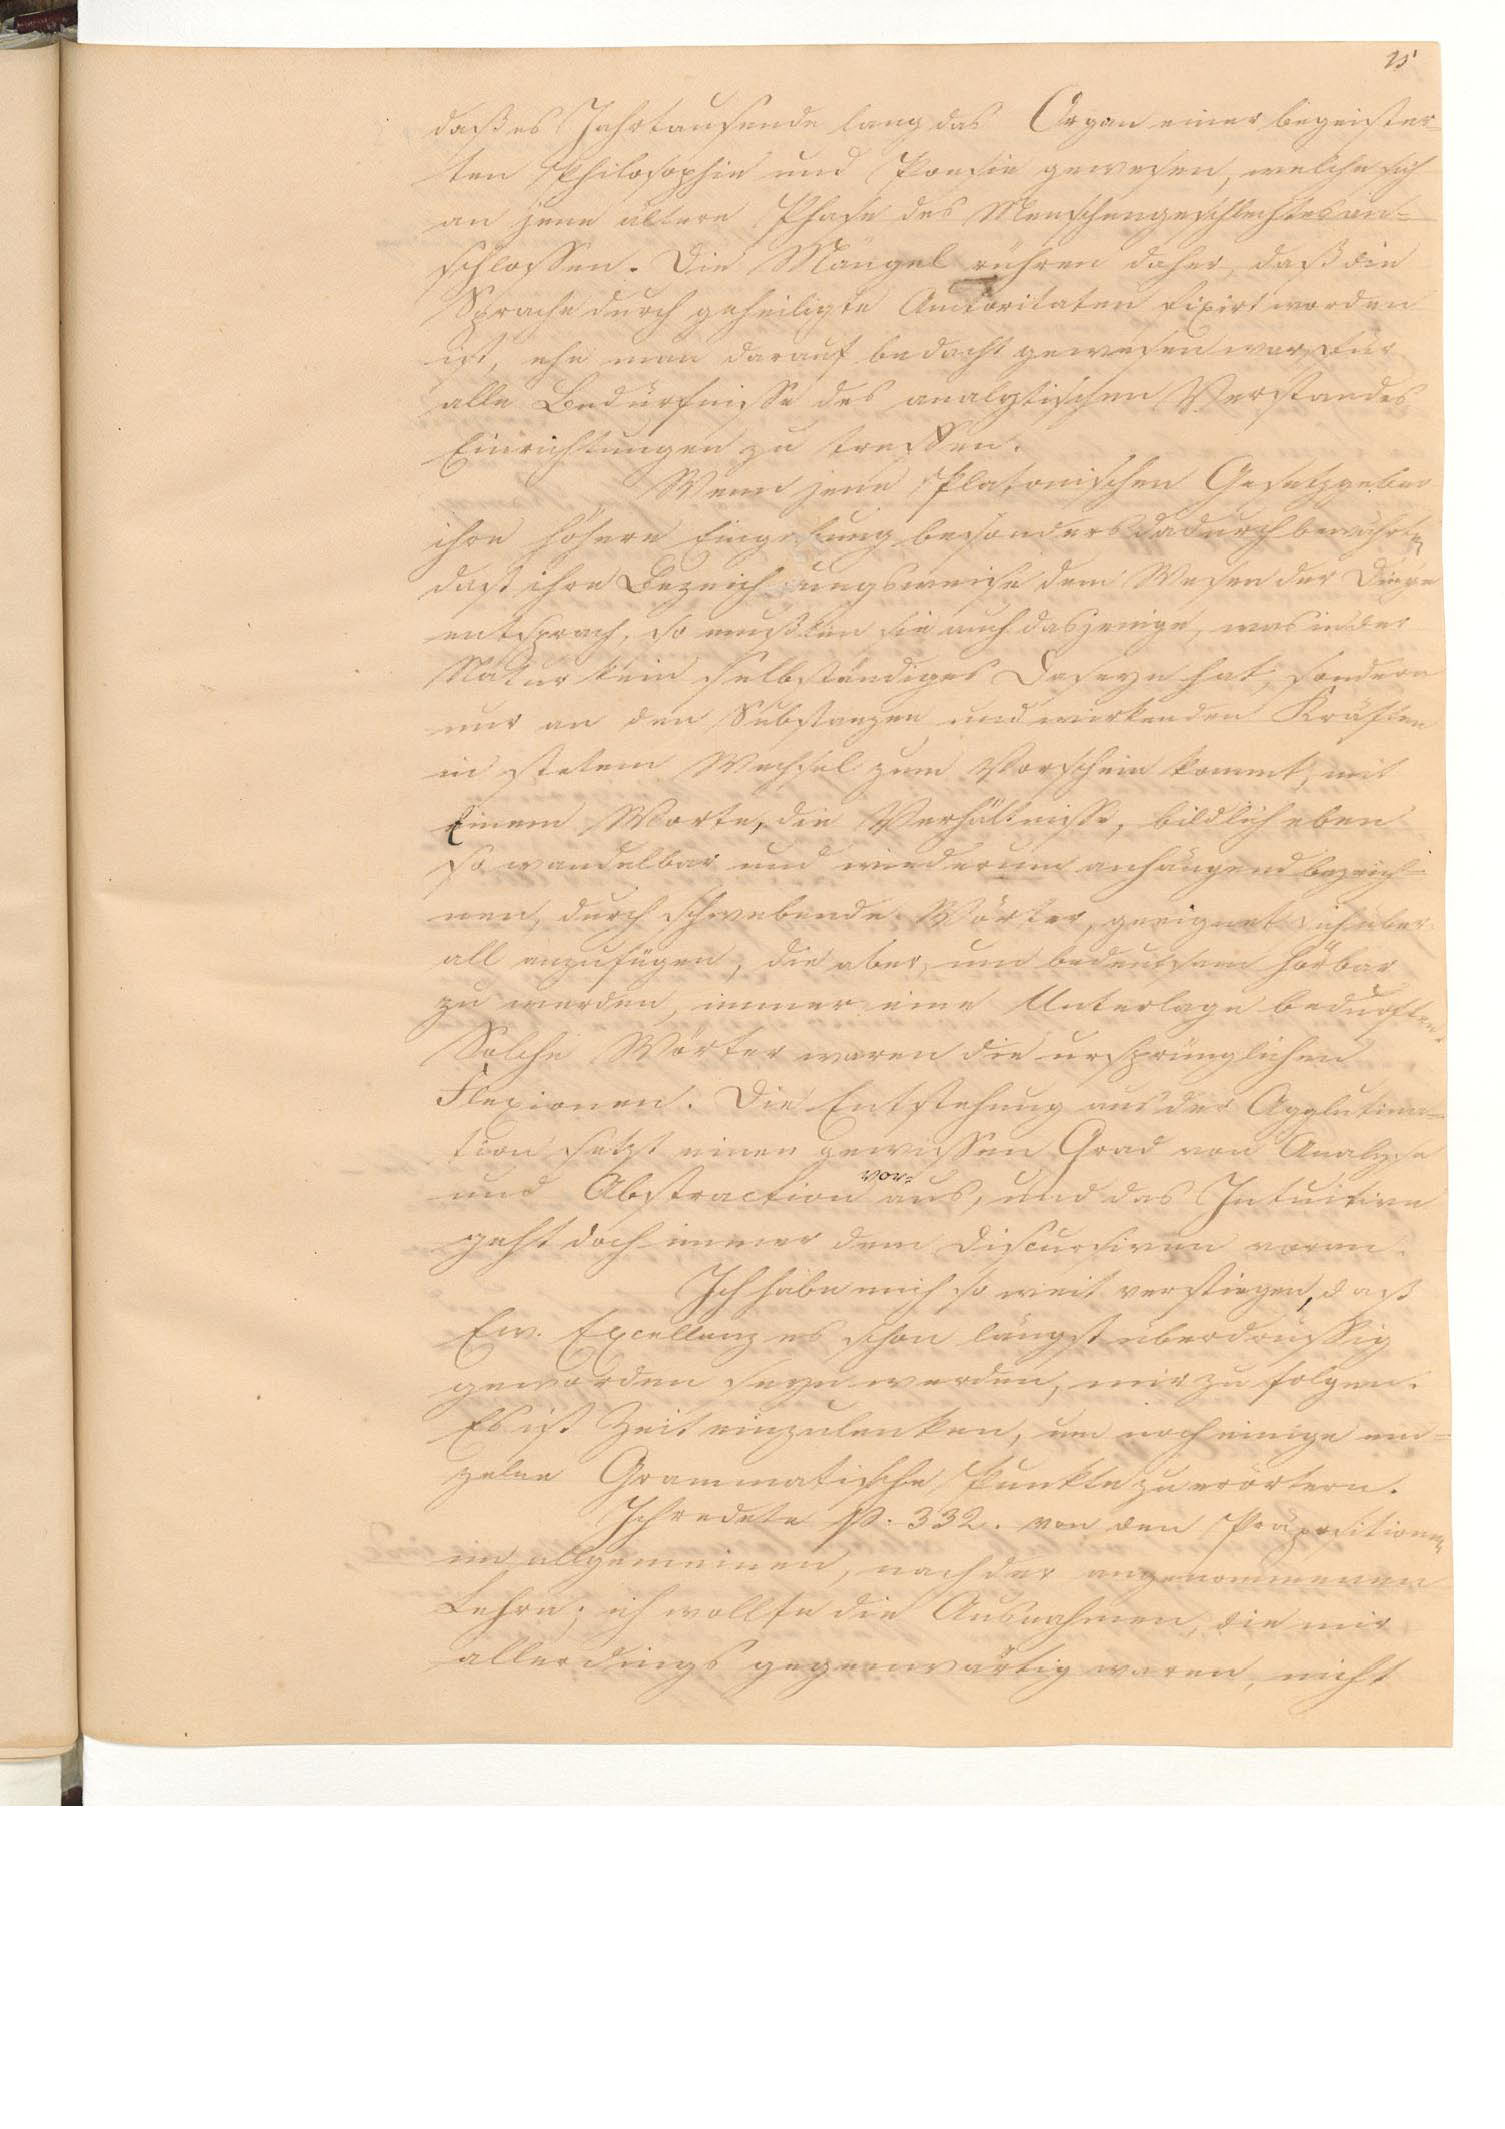 15
daß es Jahrtausende lang das Organ einer begeister-
ten Philosophie und Poesie gewesen, welche sich
an jene ältere Phase des Menschengeschlechtes an-
schlossen. Die Mängel rühren daher, daß die
Sprache durch geheiligte Autoritäten fixirt worden
ist, ehe man darauf bedacht gewesen war, für
alle Bedürfnisse des analytischen Verstandes
Einrichtungen zu treffen.
Wenn jene Platonischen Gesetzgeber
ihre höhere Eingebung besonders dadurch bewährten
daß ihre Bezeichnungsweise dem Wesen der Dinge
entsprach, so mußten sie auch dasjenige, was in der
Natur kein selbständiges Daseyn hat, sondern
nur an den Substanzen und wirkenden Kräften
in stetem Wechsel zum Vorschein kommt, mit
Einem Worte, die Verhältnisse, bildlich eben
so wandelbar und wiederum anhängend bezeich-
nen, durch schwebende Wörter, geeignet sich über-
all anzufügen, die aber, um bedeutsam hörbar
zu werden, immer eine Unterlage bedurften
Solche Wörter waren die ursprünglichen
Flexionen. Die Entstehung aus der Agglutina-
tion setzt einen gewissen Grad von Analyse
und Abstraction vor-aus, und das Intuitive
geht doch immer dem Discursiven voran.
Ich habe mich so weit verstiegen, daß
Ew. Excellenz es schon längst überdrüssig
geworden seyn werden, mir zu folgen.
Es ist Zeit einzulenken, um noch einige ein-
zelne Grammatische Punkte zu erörtern.
Ich redete S. 332. von den Präpositionen
im allgemeinen, nach der angenommenen
Lehre; ich wollte die Ausnahmen, die mir
allerdings gegenwärtig waren, nicht